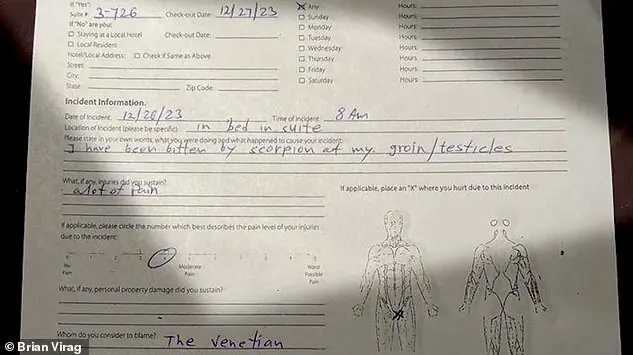 If "Yes":
Suite #: 3-726 Check-out Date: 12/27/23
If "No" are you:
Staying at a Local Hotel Check-out Date:
Local Resident
Hotel/Local Address: Check if Same as Above
Street:
City:
State: Zip Code:
Any Hours:
Sunday Hours:
Monday Hours:
Tuesday Hours:
Wednesday Hours:
Thursday Hours:
Friday Hours:
Saturday Hours:
Incident Information.
Date of Incident: 12/26/23 Time of Incident: 8 Am
Location of Incident (please be specific): in bed in suite
Please state in your own words, what you were doing and what happened to cause your incident:
I have been bitten by scorpion at my groin/testicles
What, if any, injuries did you sustain?
a lot of pain
If applicable, please circle the number which best describes the pain level of your injuries
due to the incident:
No Pain Moderate Pain Worst Possible Pain
What, if any, personal property damage did you sustain?
Whom do you consider to blame? The Venetian
If applicable, place an "X" where you hurt due to this incident
X
© Brian Virag